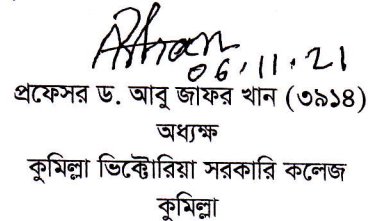 06.11.21
প্রফেসর ড. আবু জাফর খান (৩৯১৪)
অধ্যক্ষ
কুমিল্লা ভিক্টোরিয়া সরকারি কলেজ
কুমিল্লা